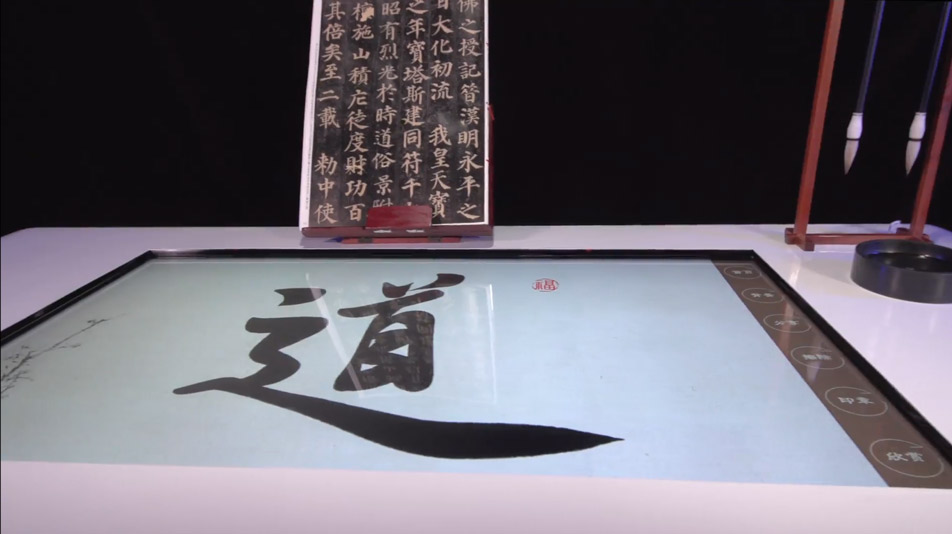 佛之授記昔漢明永平之
日大化初流 我皇天寶
之年寶塔斯建同符千
昭有烈光於時道俗景附
檀施山積庀徒度財功百
其倍矣至二載 勅中使
道
福
印章
欣賞